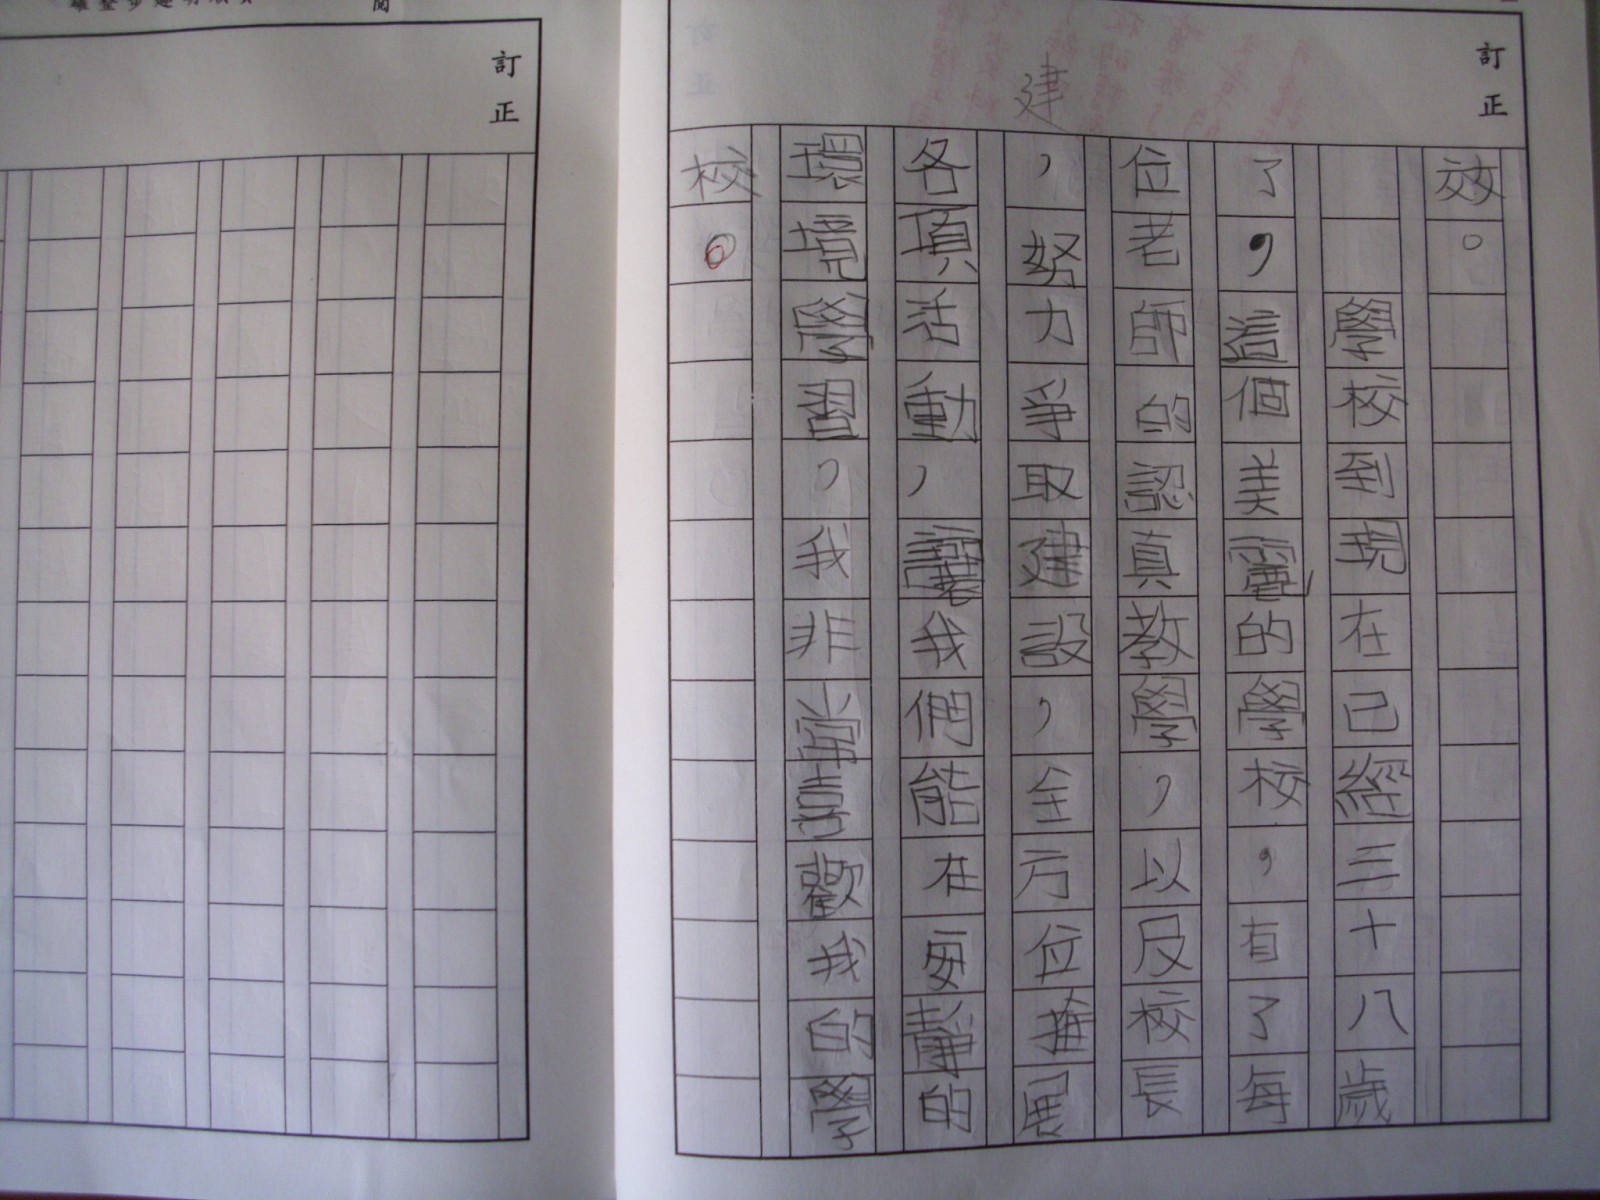 訂正
建
效。
學校到現在已經三十八歲
了，這個美麗的學校，有了每
位老師的認真教學，以及校長
，努力爭取建設，全方位推展
各項活動，讓我們能在安靜的
環境學習，我非常喜歡我的學
校。
訂正